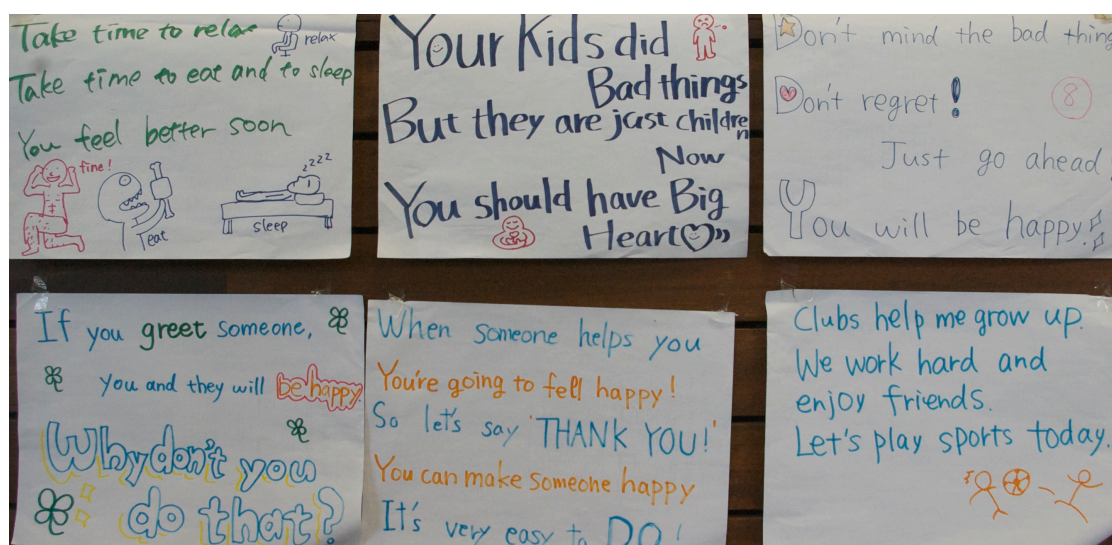 Take time to relax
relax
Take time to eat and to sleep
You feel better soon
fine!
eat
zzzz
sleep
Your Kids did
Bad things
But they are just children
Now
You should have Big
Heart
Don't mind the bad thing
Don't regret!
8
Just go ahead
You will be happy.
If you greet someone,
you and they will be happy
Why don't you
do that?
When someone helps you
You're going to fell happy!
So let's say 'THANK YOU!'
You can make someone happy
It's very easy to DO!
Clubs help me grow up.
We work hard and
enjoy friends.
Let's play sports today.